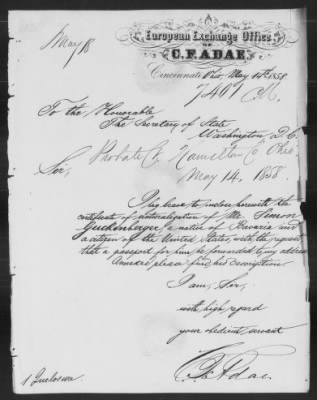 May 18
European Exchange Office
OF
C. F. ADAE,
Cincinnati Ohio, May 15th 1858
7401 M.
To the Honorable
The Secretary of State
Washington D.C.
Probate Ct Hamilton Co Ohio
Sir,
May 14, 1858
I beg leave to inclose herewith the
certificate of naturalization of Mr. Simon
a native of Bavaria and
a citizen of the United States, with the request
that a passport for him be forwarded to my address
Annexed please find his description.
I am, Sir,
with high regard
your obedient servant
C F Adae.
1 Inclosure